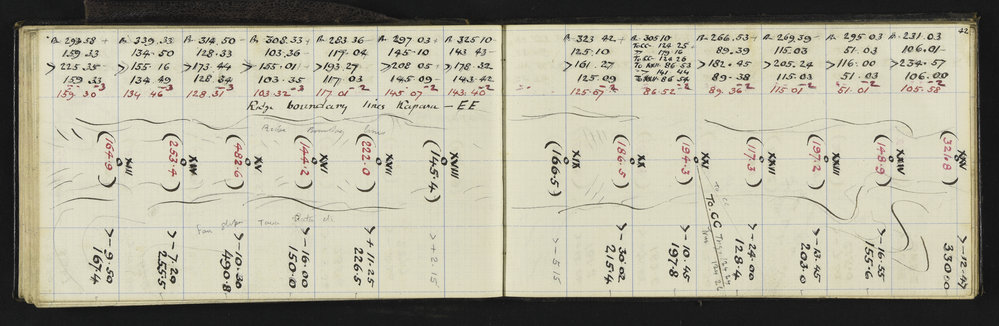 R 293.58 + R 339.33 R 314.50 - R 308.33 + R 283.36 - R 297 03 + R 325 10
159.33 134.50 128.33 103.36 - 117.04 145.10 143 43 -
> 225.35 > 155 16 > 173.44 > 155.01 - > 193.27 > 208 05 - > 178.32
159.33 134.49 128.34 103.35 117 03 145.09 - 143.42
-3 -3 -3 -3 -2 -2 -2
159.30 134 46 128.31 103.32 117 01 145.07 143.40
Ridge boundary lines Kaparu - EE
Ridge Boundary lines
(164.9) (253.4) (482.6) (144.2) (222.0) (145.4)
XIII XIV XV XVI XVII XVIII
> - 9.50 > - 7.20 > - 10.30 > - 16.00 > + 11.25 > + 2.15
167.4 255.5 490.8 150.0 226.5
42
R 323 42 + R 305 10 R 266.53 + R 269.39 - R 295 03 R 231.03
125.10 89.39 115.03 51.03 106.01 -
> 161.27 > 182.45 > 205.24 > 116.00 > 234.57
125.09 89.38 115.03 51.03 106.00
-2 -2 -2 -2 -2 -2
125.07 86.52 89.36 115.01 51.01 105.58
(166.5) (186.5) (194.3) (117.3) (197.2) (148.9) (326.8)
XIX XX XXI XXII XXIII XXIV XXV
To CC
To CC Trig
> - 5.15 > - 30.02 > - 10.45 > - 24.00 > - 13.45 > - 16.55 > - 12.47
215.4 197.8 128.4 203.0 155.6 330.0